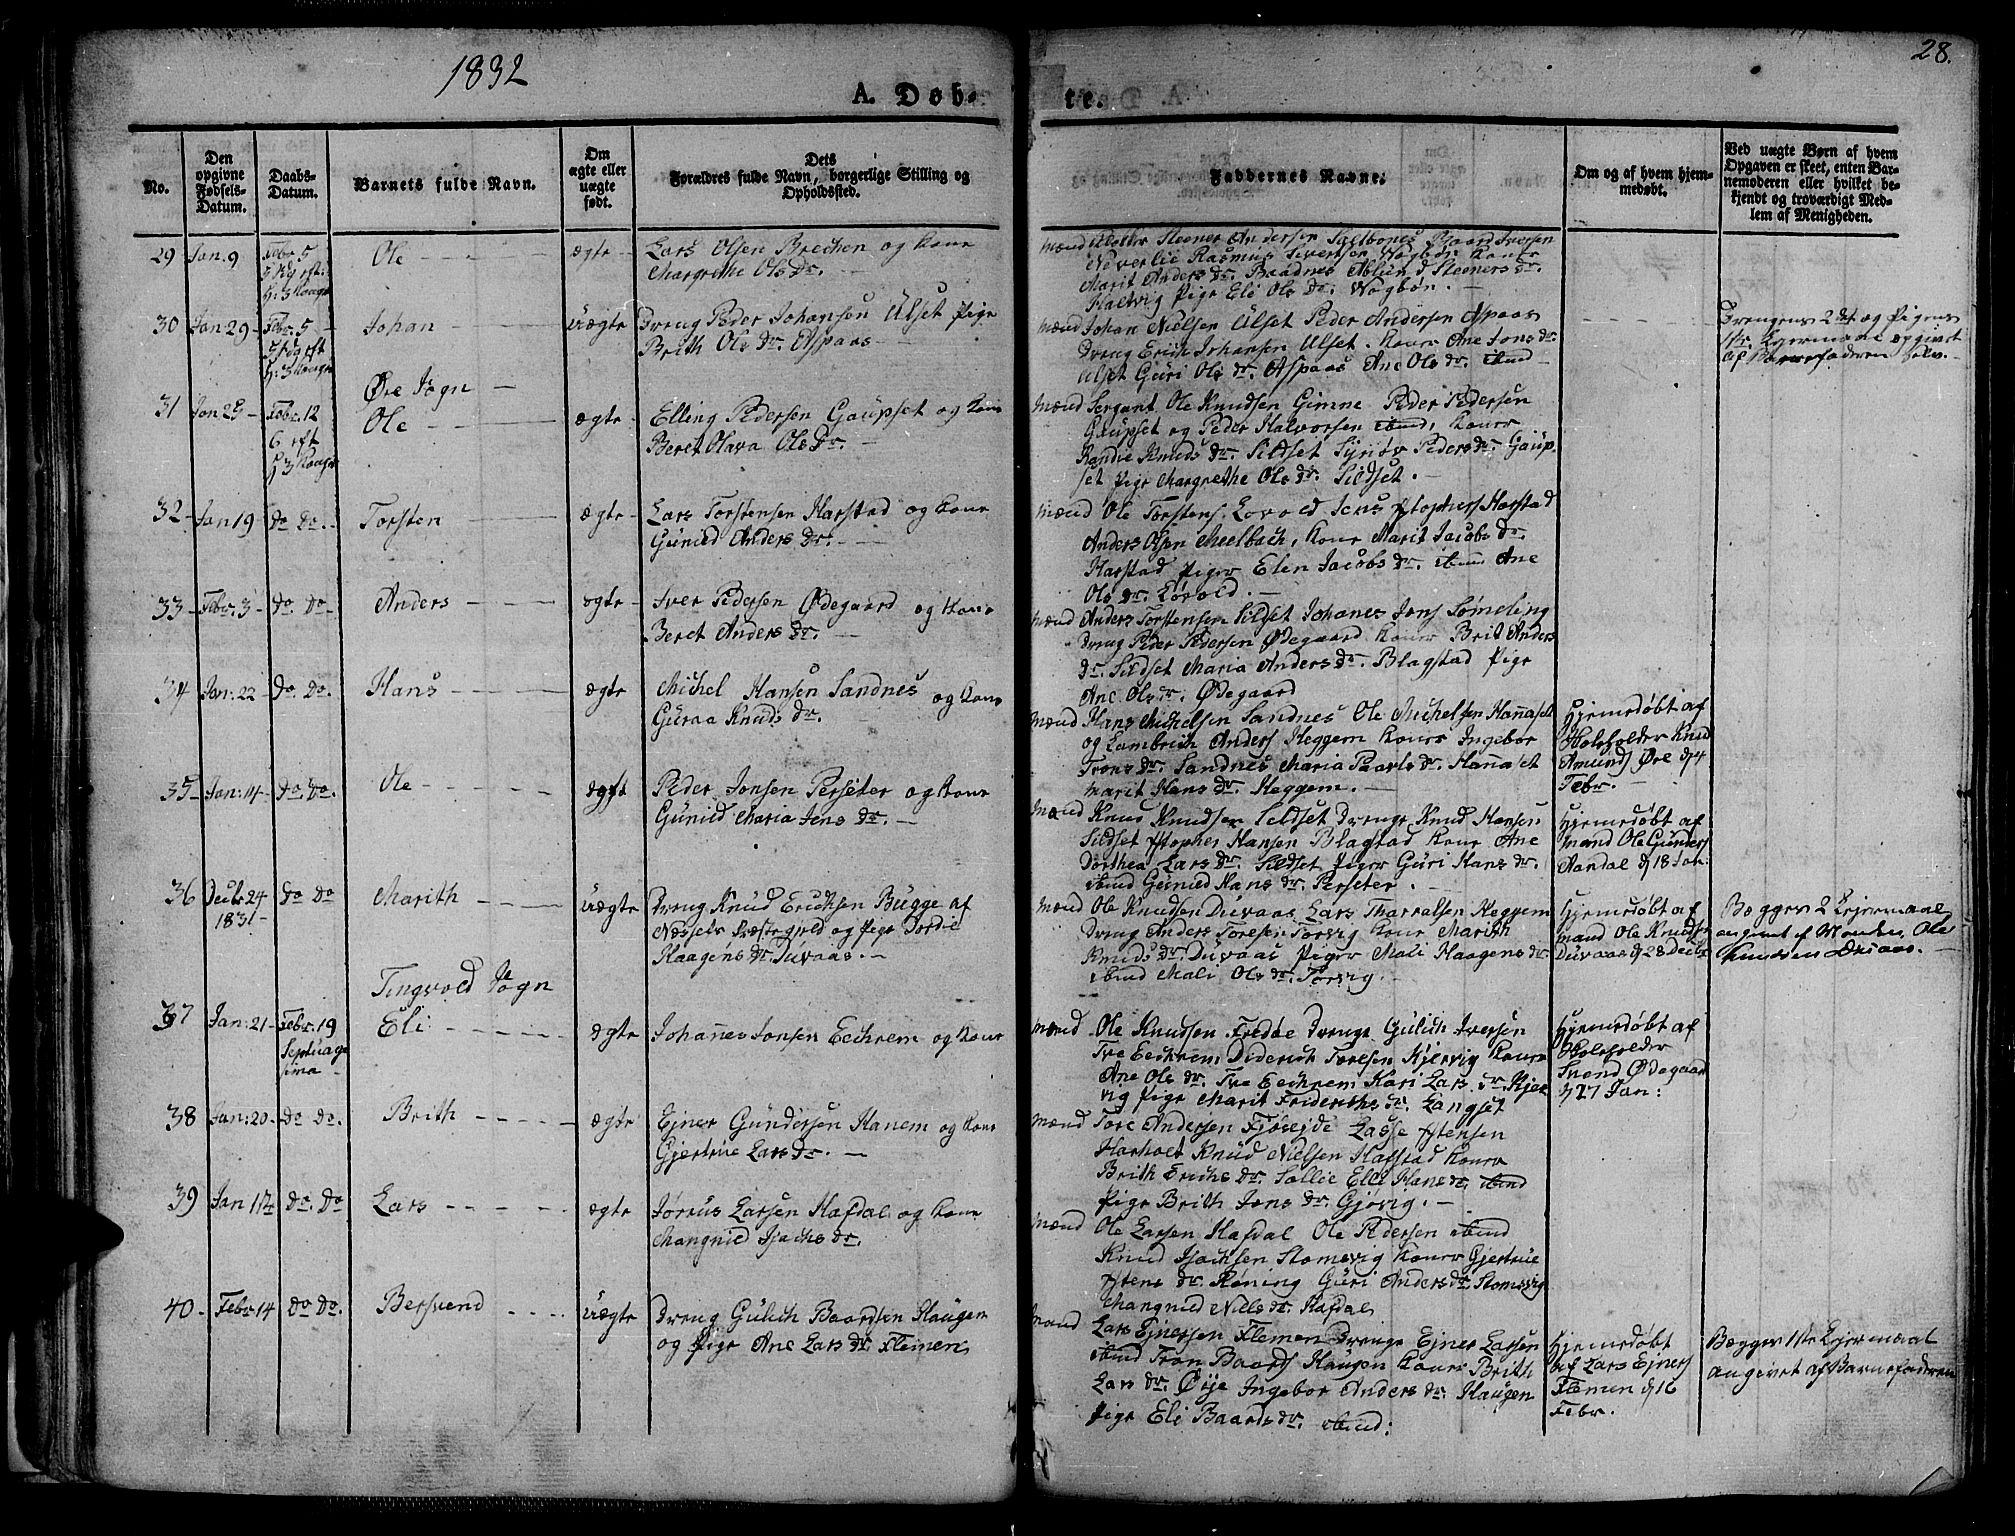 1832
28.
A. Døb-
te.
No.
Den opgivne Fødsels-Datum.
Daabs-Datum.
Barnets fulde Navn.
Om ægte eller uægte født.
Dets Forældres fulde Navn, borgerlige Stilling og Opholdssted.
Faddernes Navne.
Om og af hvem hjemmedøbt.
Ved uægte Børn af hvem Opgaven er skeet, enten Barnemoderen eller hvilket bekjendt og troværdigt Medlem af Menigheden.
29 Jan: 9 Febr. 5 Ole ægte
Lars Olsen Brechen og Kone
Margrethe Ols Dr.
Steener Andersen Iversen
Rasmus Sivertsen Wogbøn Koner
Marit Anders Dr. Baadnes Steeners Dr.
Halvig Pige Eli Ols Dr. Wogbøn.
30 Jan 29 Febr. 5 Johan uægte
Dreng Peder Johansen Ulset Pige
Brith Ols Dr. Aspaas
Mænd Johan Nielsen Ulset Peder Andersen Aspaas
Dreng Erich Johansen Ulset. Koner Ane Jons Dr.
Ulset Guri Ols Dr. Aspaas Ane Ols Dr. ibid
Drengens 2det og Pigens
1ste Lejermaal opgivet
af Barnefaderen selv.
Øre Sogn
31 Jan 25 Febr. 12 Ole ægte
6 eft
H 3 Konge
Elling Pedersen Gaupset og Kone
Beret Olava Ols Dr.
Mænd Sergant Ole Knudsen Gimne Peder Pedersen
Gaupset og Peder Halvorsen ibid, Koner
Randie Knuds Dr. Sildset Synøv Peders Dr. Gaup-
set Pige Margrethe Ols Dr. Sildset.
32 Jan 19 Do Do Torsten ægte
Lars Torstensen Harstad og Kone
Gunild Anders Dr.
Mænd Ole Torstens. Lovold Jens Harstad
Anders Olsen Meelbach, Kone Marit Jacobs Dr.
Harstad Piger Elen Jacobs Dr. ibid Ane
Ols Dr. Løvold.
33 Febr. 3 Do Do Anders ægte
Iver Pedersen Ødegaard og Kone
Beret Anders Dr.
Mænd Anders Torstensen Sildset Johanes Jons Sømeling
Dreng Peder Pedersen Ødegaard Koner Brit Anders
Dr. Sildset Maria Anders Dr. Blagstad Pige
Ane Ols Dr. Ødegaard
34 Jan: 22 Do Do. Hans ægte
Michel Hansen Sandnes og Kone
Guraa Knuds Dr.
Mænd Hans Michelsen Sandnes Ole Michelsen Hanaset
og Lambrith Anders Heggem Koner Ingebor
Trons Dr. Sandnes Maria Paavls Dr. Hanaset
Marit Hans Dr. Heggem.
Hjemedøbt af
Skoleholder Knud
Amunds Øre d 4
Febr.
35 Jan: 14 Do Do. Ole ægt
Peder Jonsen Perseter og Kone
Gunild Maria Jens Dr.
Mænd Knud Knudsen Sildset Drenge Knud Hansen
Sildset Hansen Blagstad Kone Ane
Dorthea Lars Dr. Sildset Piger Guri Hans Dr.
ibid Gunild Hans Dr. Perseter.
Hjemedøbt af
mand Ole Gunders
Aandal d 18 Jan:
36 Decbr 24 Do Do Marith uægte
1831
Dreng Knud Erichsen Bugge af
Næssets Præstegjeld og Pige Jordie
Haagens Dr. Duvaas.
Mænd Ole Knudsen Duvaas Lars Tharralsen Heggem
Dreng Anders Toresen Torvig Kone Marith
Knuds Dr. Duvaas Piger Mali Haagens Dr.
ibid Mali Ols Dr. Torvig.
Hjemedøbt af
mand Ole Knudsen
Duvaas d 28 Decbr
Begges 2 Lejermaal
angivet af Manden Ole
Knudsen Duvaas.
Tingvold Sogn
37 Jan: 21 Febr. 19 Eli ægte
Septuage
sima
Johanes Jonsen Eechrem og Kone
Mænd Ole Knudsen Fredøe Drenge Gulich Iversen
Tre Eechrem Diderich Toresen Kjervig Koner
Ane Ols Dr. Tre Eechrem Kari Lars Dr. Kjer
vig Pige Marit Friderichs Dr. Langset
Hjemedøbt af
Skoleholder
Svend Ødegaard
d 27 Jan:
38 Jan: 20 Do Do. Brith ægte
Ejner Gundersen Hanem og Kone
Gjertrue Lars Dr.
Mænd Tore Andersen Fjøsejde Lasse
Knud Nielsen Hafstad Koner
Brith Erichs Dr. Sollie Elie Hans Dr. ibid
Pige Brith Jons Dr. Gjøvig.
39 Jan 14 Do. Do Lars ægte
Jørrus Larsen Hafdal og Kone
Mangnild Isachs Dr.
Mænd Ole Larsen Hafdal Ole Pedersen ibid
Knud Isachsen Stomsvig Koner Gjertrue
Dr. Røning Guri Anders Dr. Stomsvig
Mangnild Niels Dr. Hafdal
40 Febr 14 Do Do. Bersvend uægte
Dreng Gulich Baardsen Haugen
og Pige Ane Lars Dr. Flemen
Mænd Lars Ejnersen Flemen Drenge Ejner Larsen
ibid Tron Baards Haugen Koner Brith
Lars Dr. Øye Ingebor Anders Dr. Haugen
Pige Eli Baards Dr. ibid:
Hjemedøbt
af Lars Ejners
Flemen d 16
Febr.
Begges 1ste Lejermaal
angivet af Barnefaderen